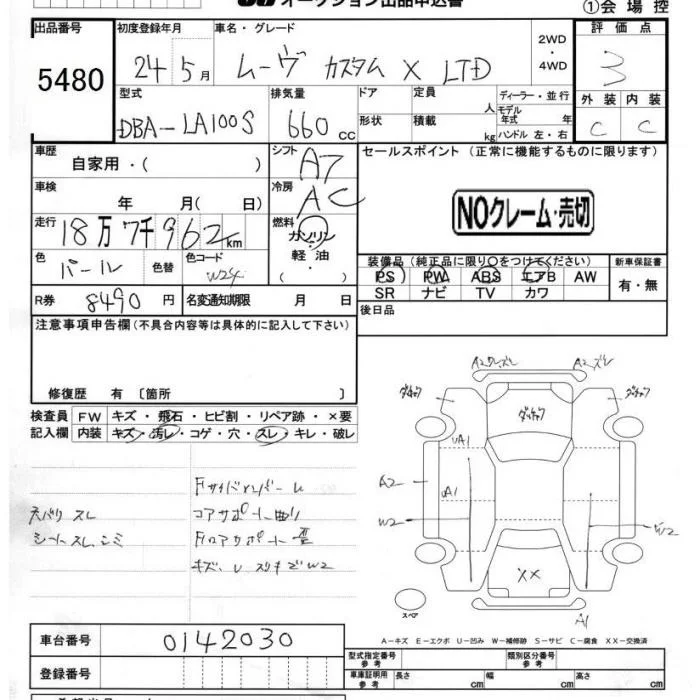 オークション出品申込書
①会場控
出品番号 初度登録年月 車名・グレード 2WD・4WD 評価点
5480 24年5月 ムーヴ カスタム X LTD 3
型式 排気量 ドア 定員 人 ディーラー・並行 外装 内装
DBA-LA100S 660cc 形状 積載 kg モデル年式 年 ハンドル 左・右 C C
車歴 シフト セールスポイント (正常に機能するものに限ります)
自家用・( ) A7
車検 冷房
年 月( 日) AC
NOクレーム・売切
走行 燃料
18万7千962km ガソリン・軽油・( )
色 色替 色コード
パール W24
装備品(純正品に限り○をつけてください) 新車保証書
PS PW ABS エアB AW 有・無
SR ナビ TV カワ
R券 8490円 名変通知期限 月 日
後日品
注意事項申告欄(不具合内容等は具体的に記入して下さい)
修復歴 有〔箇所 〕
検査員記入欄 FW キズ・飛石・ヒビ割・リペア跡・×要
内装 キズ・汚レ・コゲ・穴・スレ・キレ・破レ
Fサイドメンバー U
ネバリ スレ コアサポート曲り
シートスレ、シミ Fロアサポート歪
キズ、U スリキズ W2
A2 スレ A2 ズレ
ダキョウ ダキョウ
ダキョウ
UA1
A2 UA1
W2 W2
XX
スペア A1
A-キズ E-エクボ U-凹み W-補修跡 S-サビ C-腐食 XX-交換済
車台番号 0142030
型式指定番号 参考 類別区分番号 参考
登録番号
車庫証明用 参考 長さ cm 幅 cm 高さ cm